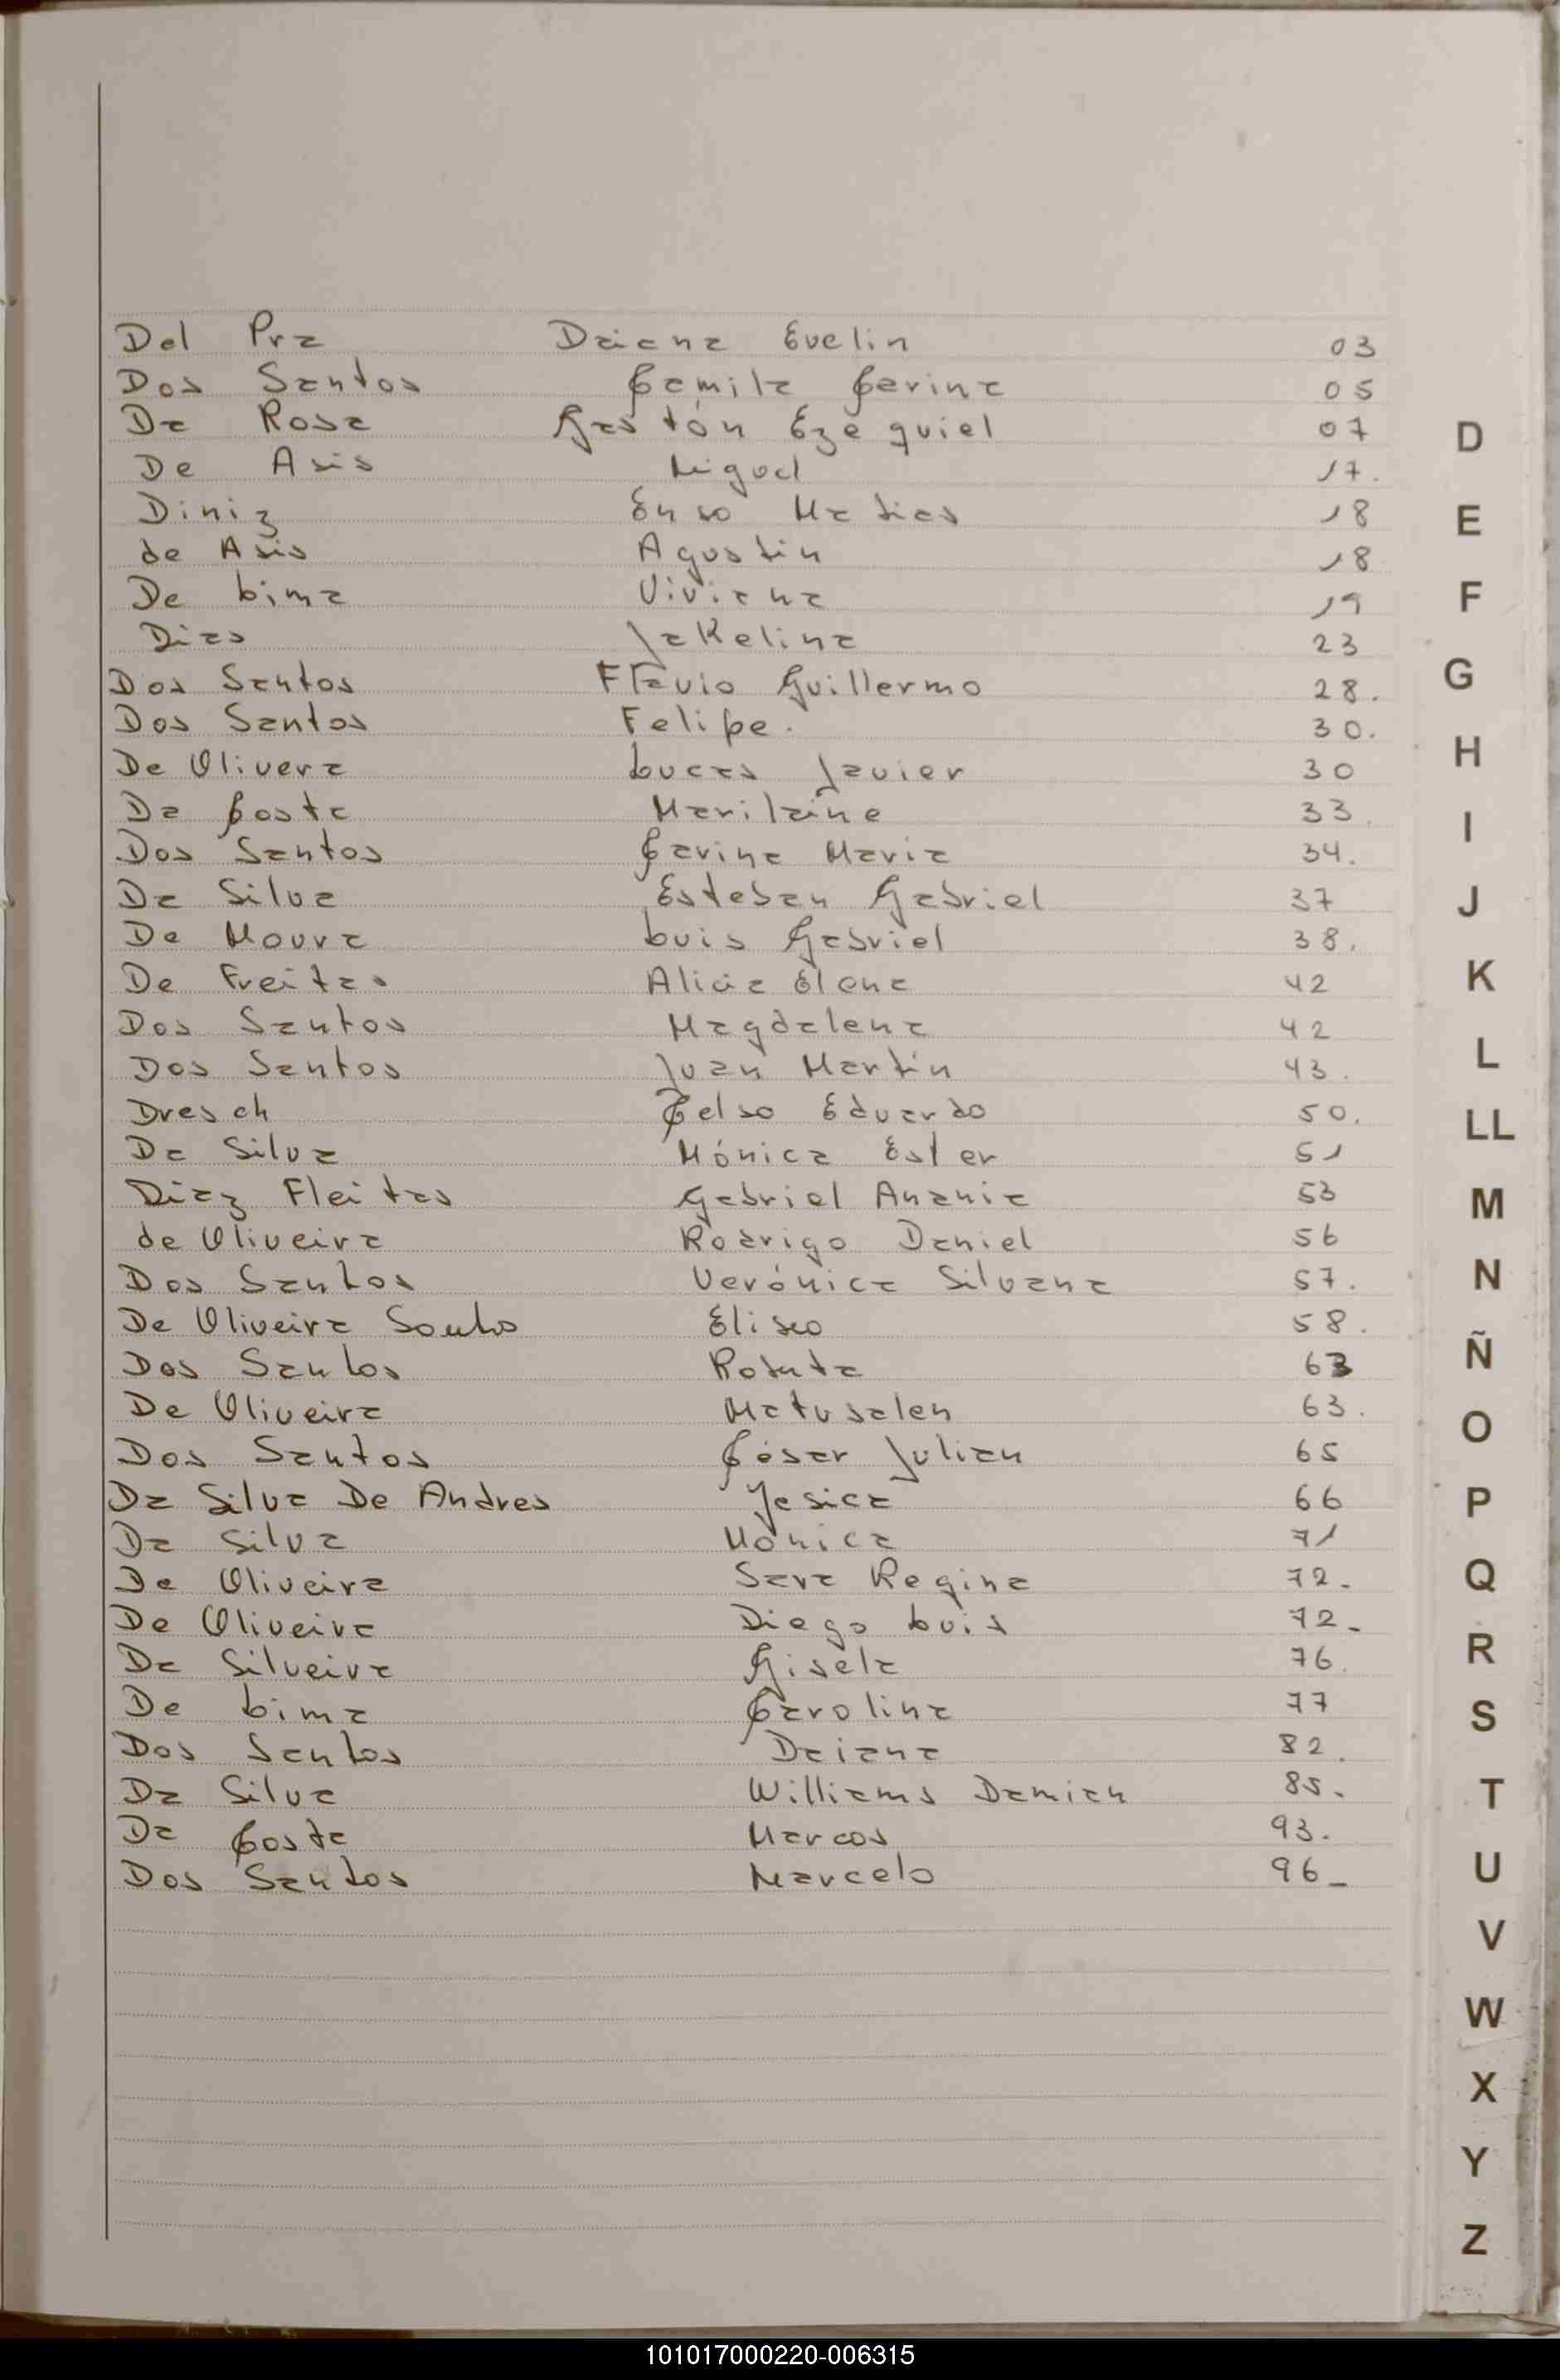 Del Pra Daiana Evelin 03
Dos Santos Camila Carina 05
Da Rosa Gastón Ezequiel 07
De Asis Miguel 17.
Diniz Enso Matias 18
de Asis Agustin 18
De Lima Viviana 19
Dias Jakelina 23
Dos Santos Flavio Guillermo 28.
Dos Santos Felipe. 30.
De Olivera Lucas Javier 30
Da Costa Marilaine 33.
Dos Santos Carina Maria 34.
Da Silva Esteban Gabriel 37
De Moura Luis Gabriel 38.
De Freitas Alicia Elena 42
Dos Santos Magdalena 42
Dos Santos Juan Martín 43.
Dresch Celso Eduardo 50.
Da Silva Mónica Ester 51
Diaz Fleitas Gabriel Anania 53
de Oliveira Rodrigo Daniel 56
Dos Santos Verónica Silvana 57.
De Oliveira Eliseo 58.
Dos Santos 63
De Oliveira Matusalen 63.
Dos Santos César Julian 65
Da Silva De Andres Yesica 66
Da Silva Mónica 71
De Oliveira Sara Regina 72.
De Oliveira Diego Luis 72.
Da Silveira Gisela 76.
De Lima Carolina 77
Dos Santos Daiana 82.
Da Silva Williams Damian 85.
Da Costa Marcos 93.
Dos Santos Marcelo 96_
D
E
F
G
H
I
J
K
L
LL
M
N
Ñ
O
P
Q
R
S
T
U
V
W
X
Y
Z
101017000220-006315